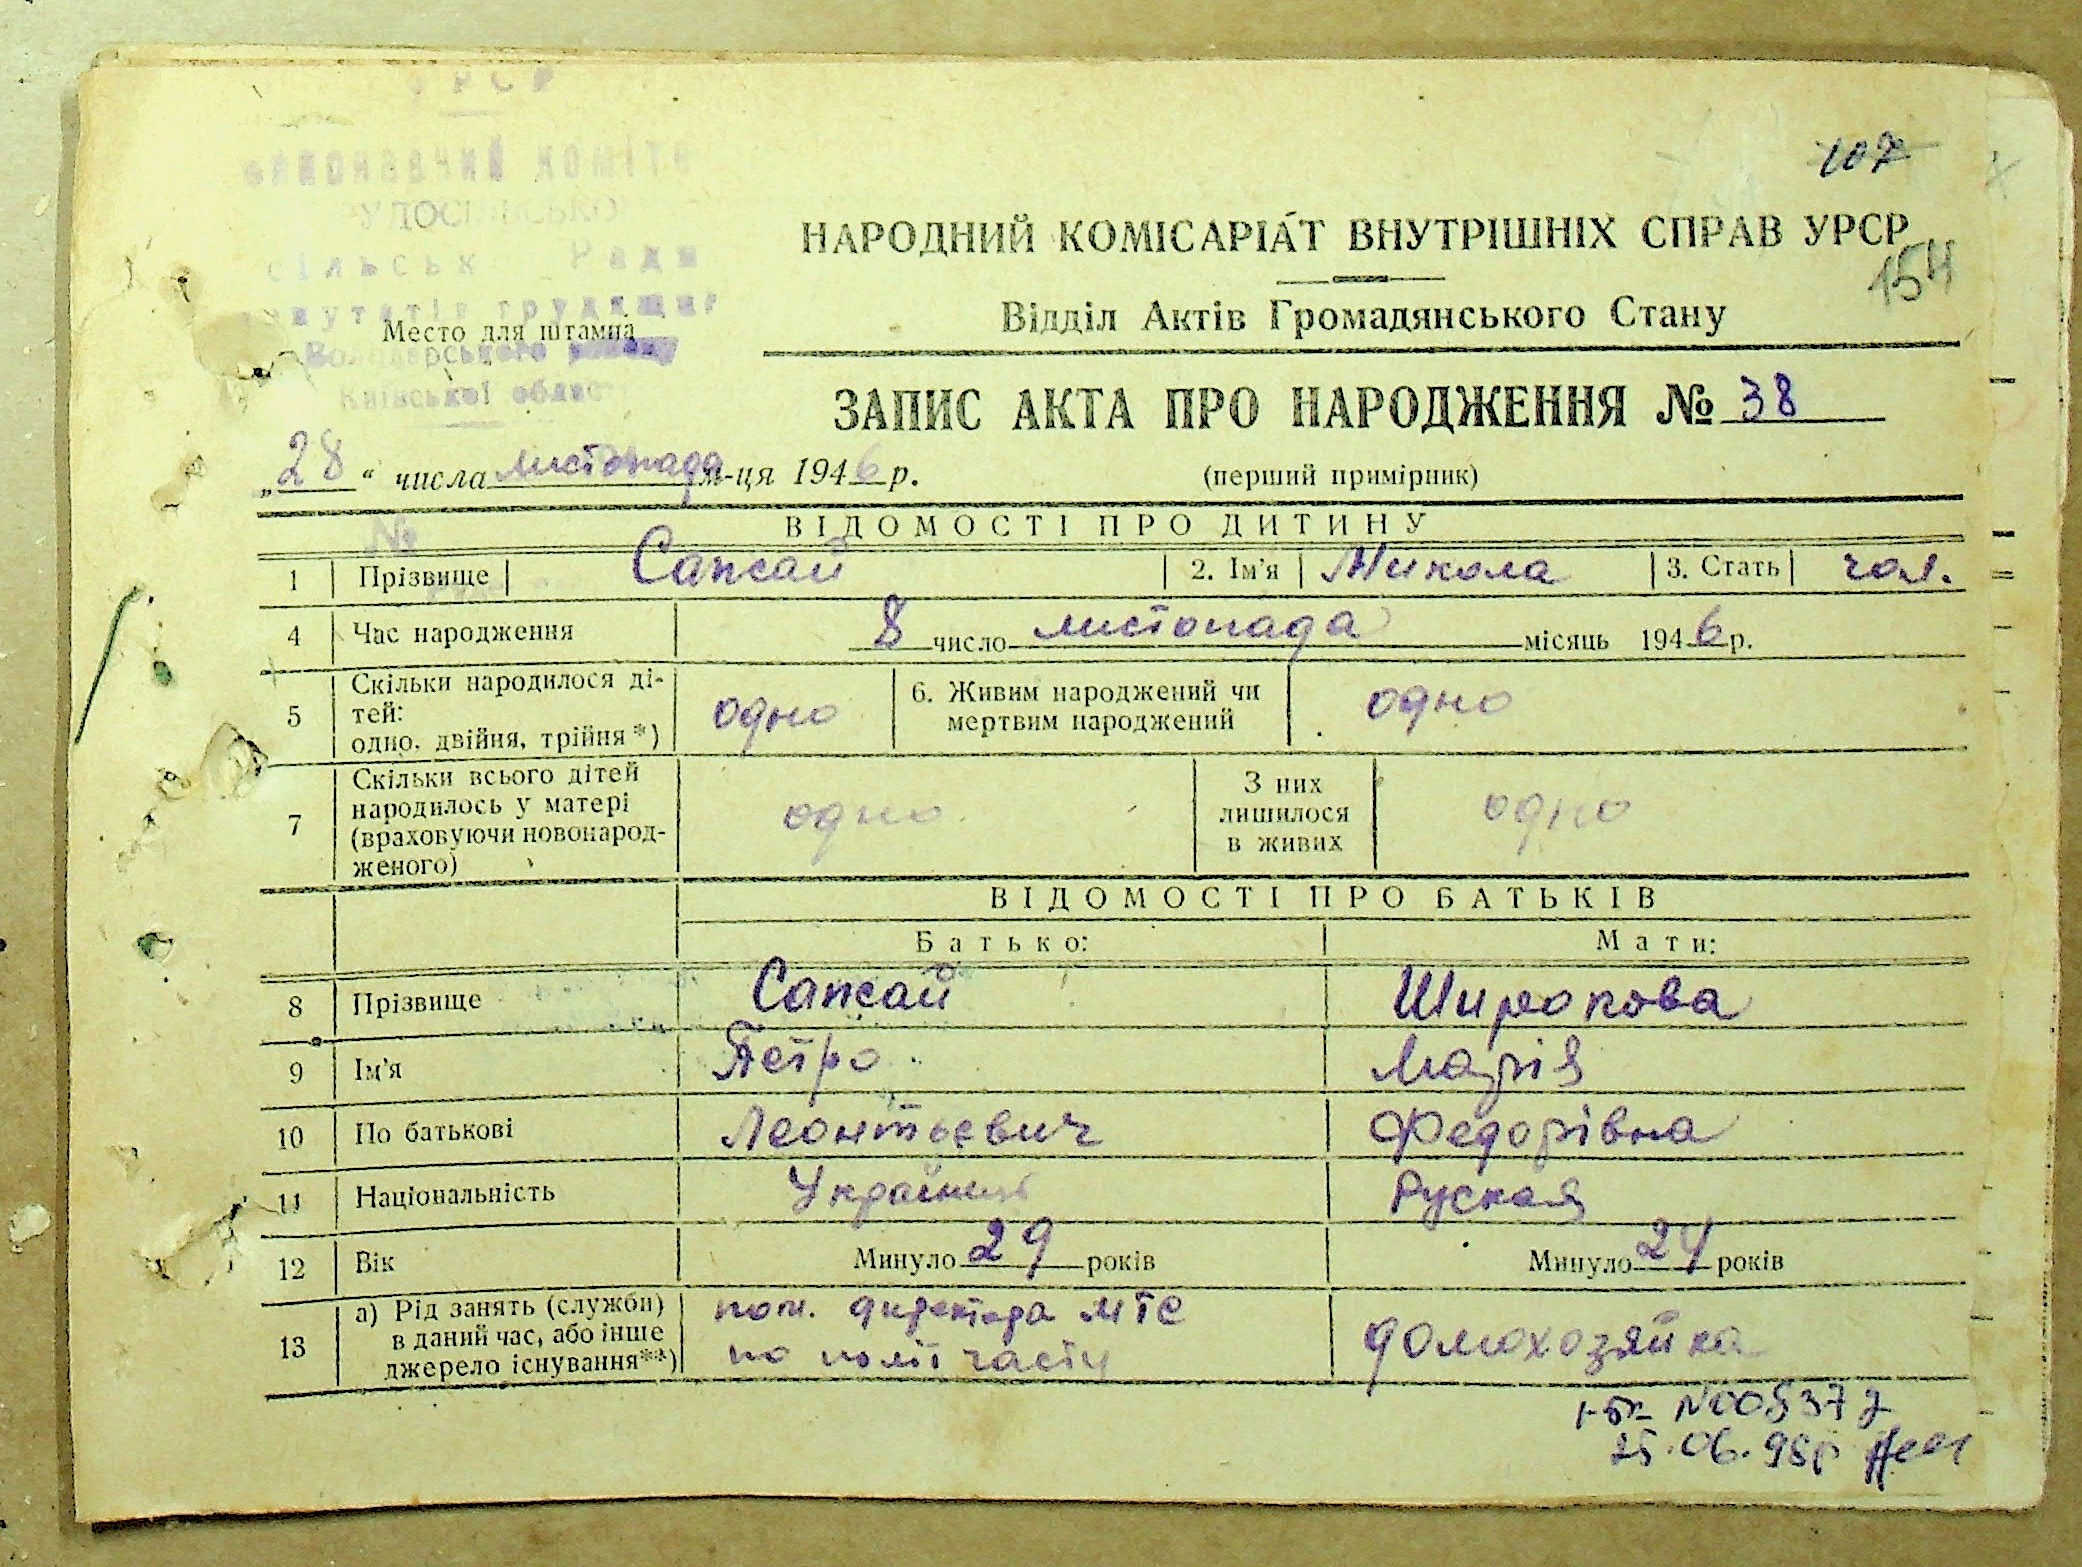 УРСР
виконавчий коміте
РУДОСЕЛЬСЬКО
сільськ Ради
депутатів трудящих
Место для штампа
Володарського району
Київської облас
107
НАРОДНИЙ КОМІСАРІАТ ВНУТРІШНІХ СПРАВ УРСР
154
Відділ Актів Громадянського Стану
ЗАПИС АКТА ПРО НАРОДЖЕННЯ № 38
„28“ числа листопада м-ця 1946 р.
(перший примірник)
№
ВІДОМОСТІ ПРО ДИТИНУ
1 Прізвище Сапсай 2. Ім'я Микола 3. Стать чол.
4 Час народження 8 число листопада місяць 1946 р.
5 Скільки народилося ді-
тей:
одно, двійня, трійня*) одно
6. Живим народжений чи
мертвим народжений одно
7 Скільки всього дітей
народилось у матері
(враховуючи новонарод-
женого) одно
З них
лишилося
в живих одно
ВІДОМОСТІ ПРО БАТЬКІВ
Батько: Мати:
8 Прізвище Сапсай Широкова
9 Ім'я Петро Марія
10 По батькові Леонтьевич Федорівна
11 Національність Українец Руская
12 Вік Минуло 29 років Минуло 24 років
13 а) Рід занять (служби)
в даний час, або інше
джерело існування**)
пом. директора МТС
по політ части
домохозяйка
25.06.98р